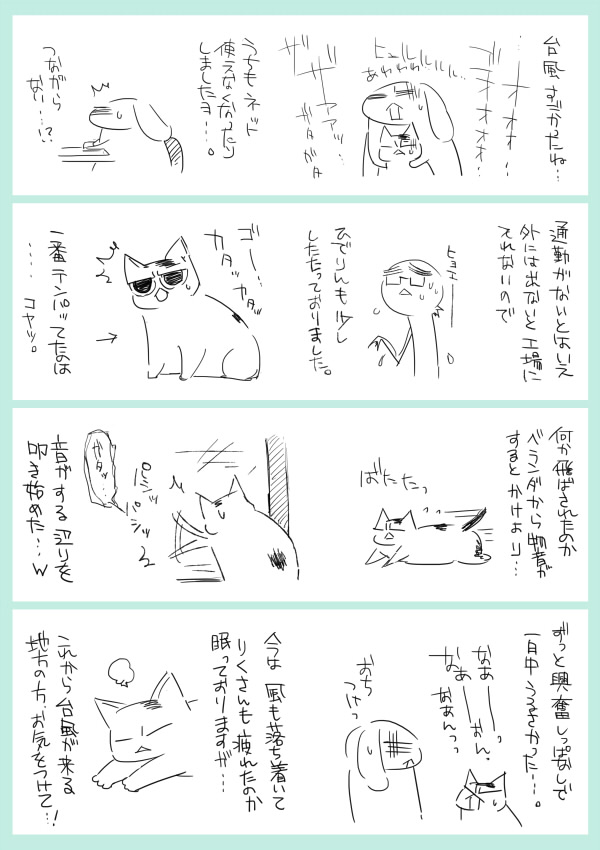 台風 すごかったね…
ゴオオオオ…
オオオオ…
ヒュルルルル…
あわわわ
ザザアアッ…
ザ
ガタガタ
うちもネット
使えなくなったり
しましたヨ…。
つながら
ない…!?
通勤がないとはいえ
外には出ないと工場に
入れないので
ヒョエ
ひでりんも少し
したたっておりました。
ゴー…
カタッカタッ
一番テンパッてたのは
…… コヤツ。
何か飛ばされたのか
ベランダから物音が
するとかけより…
ばたたっ
パシッ
パシッ
ガタッ…
音がする辺りを
叩き始めた…w
ずっと興奮しっぱなしで
一日中うるさかった…。
なあーーっ
なあーーおん。
なおぁんっっ
おち
つけっ
今は 風も落ち着いて
りくさんも疲れたのか
眠っておりますが…
これから台風が来る
地方の方、お気をつけて…!